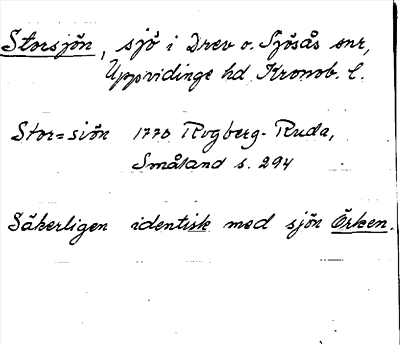 Storsjön, sjö i Drev o. Sjösås snr,
Uppvidinge hd Kronob. l.
Stor=siön 1770 Rogberg-Ruda,
Småland s. 294
Säkerligen identisk med sjön Örken.